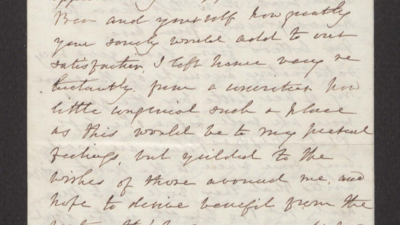 Ben and yourself how greatly
your society would add to our
satisfaction. I left home very re
luctantly, from a conviction how
little congenial such a place
as this would be to my present
feelings, but yielded to the
wishes of those around me, and
hope to derive benefit from the